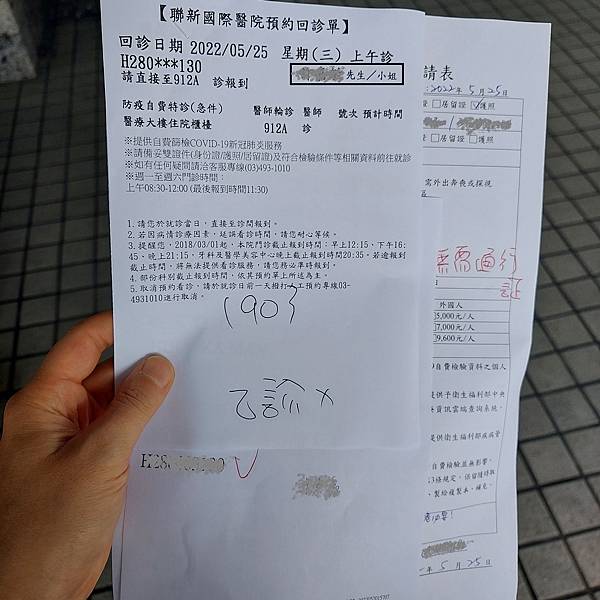 【聯新國際醫院預約回診單】
回診日期 2022/05/25 星期(三) 上午診
H280***130
請直接至912A 診報到
先生／小姐
防疫自費特診(急件) 醫師輪診 醫師 號次 預計時間
醫療大樓住院櫃檯 912A 診
※提供自費篩檢COVID-19新冠肺炎服務
※請備妥雙證件(身份證/護照/居留證)及符合檢驗條件等相關資料前往就診
※如有任何疑問請洽客服專線(03)493-1010
※週一至週六門診時間：
上午08:30-12:00 (最後報到時間11:30)
1. 請您於就診當日，直接至診間報到。
2. 若因病情診療因素，延誤看診時間，請您耐心等候。
3. 提醒您，2018/03/01起，本院門診截止報到時間：早上12:15、下午16:
45、晚上21:15，牙科及醫學美容中心晚上截止報到時間20:35。若逾報到
截止時間，將無法提供看診服務，請您務必準時報到。
4. 部份科別截止報到時間，依其預約單上所述為主。
5. 取消預約看診，請於就診日前一天撥打人工預約專線03-
4931010進行取消。
1903
乙診
請表
2022年5月25日
□居留證 護照
□居留證 □護照
需外出奔喪或探視
通行
証
外國人
5,000元/人
7,000元/人
9,600元/人
自費檢驗資料之個人
提供予衛生福利部中央
資訊雲端查詢系統，
提供衛生福利部疾病管
自費檢驗並無影響，
3條規定，保留請求取
、製給複製本、補充、
年5月25日
H28